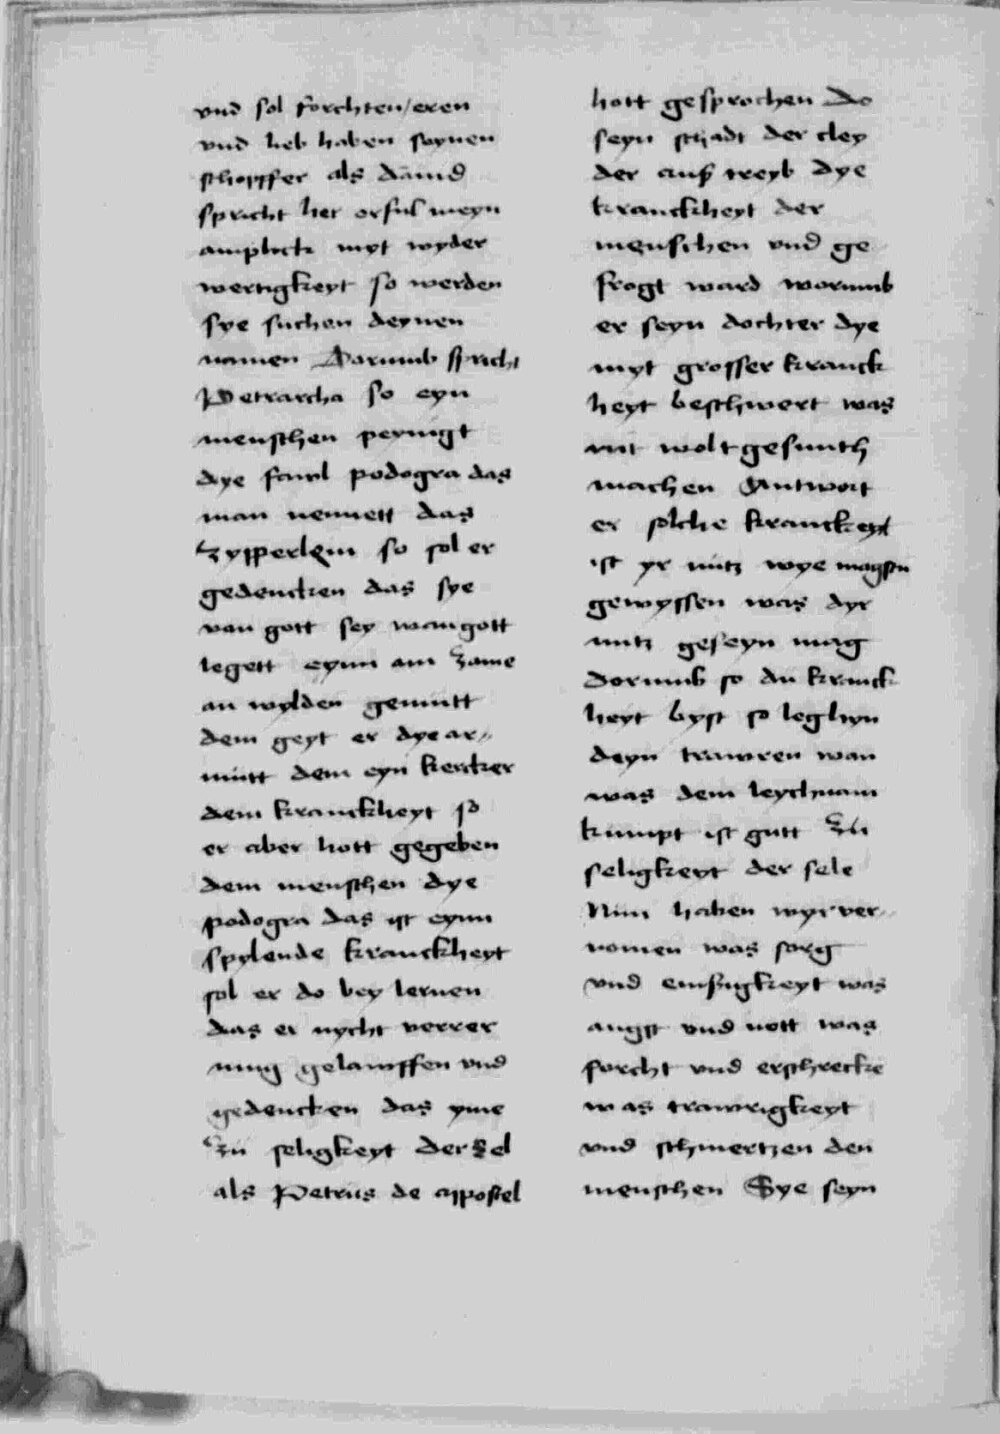 vnd sol forchten/eren
vnd lieb haben seynen
schopffer als dauid
spricht her erful meyn
amplick myt wyder
wertigkeyt so werden
sye suchen deynen
namen Darumb spricht
Petrarcha so eyn
menschen peynigt
dye fawl podogra das
man nennett das
Zypperleyn so sol er
gedencken das sye
van gott sey wan gott
legett eynn am zame
an wylden gemutt
dem geyt er dye ar„
mutt dem eyn kercker
dem kranckheyt so
er aber hott gegeben
dem menschen dye
podogra das ist eynn
spylende kranckheyt
sol er do bey lernen
das er nycht verrer
mug gelawffen vnd
gedencken das yme
Zu seligkeyt der sel
als Petrus de apostel
hott gesprochen Do
seyn schadt der cley
der auß treyb dye
kranckheyt der
menschen vnd ge
frogt ward worumb
er seyn dochter dye
myt grosser kranck
heyt beschwert was
nit wolt gesunth
machen Antwort
er solche kranckeyt
ist yr nutz wye magstu
gewyssen was dyr
nutz geseyn mag
Dorumb so du kranck
heyt byst so leg hyn
deyn trawren wan
was dem leychnam
kumpt ist gutt Zu
seligkeyt der sele
Nun haben wyr ver„
nomen was sorg
vnd emßigkeyt was
angst vnd nott was
forcht vnd erschrecke
was trawrigkeyt
vnd schmertzen den
menschen Sye seyn